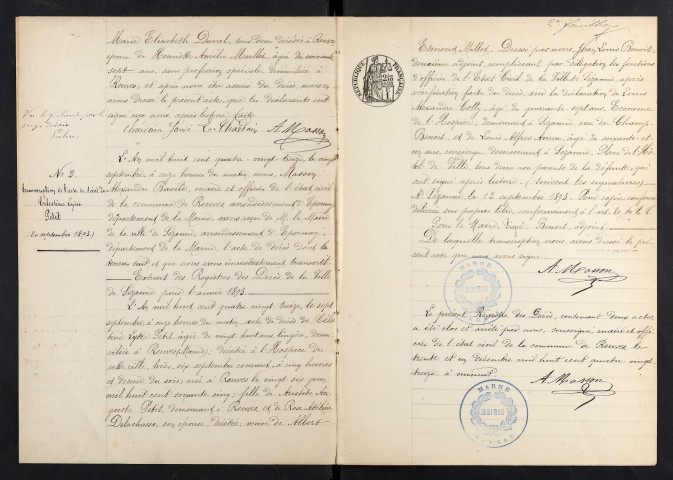 Marie Elisabeth Duval, tous deux décédés à Reuves
épouse de Amélie Maillet, âgé de soixante
sept ans, sans profession, domicilié à
Reuves, et après nous être assuré du décès, nous en
avons dressé le présent acte, que les déclarants ont
signé avec nous après lecture faite
Chardain A. Masson
N° 2
Transcription de l'acte de décès de
Célestine Lysie
Petit
20 septembre 1893
L'An mil huit cent quatre-vingt treize, le vingt
septembre, à onze heures du matin, nous, Masson
Alexandre Basile, maire et officier de l'état civil
de la commune de Reuves arrondissement d'Epernay,
département de la Marne, avons reçu de M. le Maire
de la ville de Sézanne, arrondissement d'Epernay,
département de la Marne, l'acte de décès dont la
teneur suit et que nous avons immédiatement transcrit.
Extrait des Registres des Décès de la Ville
de Sézanne pour l'année 1893.
L'An mil huit cent quatre-vingt treize, le sept
septembre à onze heures du matin, acte de décès de
Petit, âgée de vingt huit ans, lingère, domi-
ciliée à Reuves (Marne), décédée à l'Hospice de
cette ville, hier, six septembre courant, à cinq heures
et demie du soir, née à Reuves le vingt six juin
mil huit cent soixante cinq; fille de Aristide Au-
guste Petit, demeurant à Reuves, et de Rose
Delachasse, son épouse décédée, veuve de Albert
2e feuillet
RÉPUBLIQUE FRANÇAISE
Edmond Millot. Dressé par nous, Jean Louis Benoit,
deuxième adjoint, remplissant par délégation les fonctions
d'officier de l'Etat Civil de la Ville de Sézanne, après
vérification faite du décès, sur la déclaration de Louis
Alexandre Colly, âgé de quarante sept ans, Econome
de l'Hospice, demeurant à Sézanne, rue du Champ-
Benoit, et de Louis Alfred âgé de soixante et
un ans, concierge demeurant à Sézanne, Place de l'Hô-
tel de Ville, tous deux non parents de la défunte, qui
ont signé après lecture. (Suivent les signatures)
A Sézanne le 12 septembre 1893. Pour copie conforme
délivrée sur papier libre, conformément à l'art.
Pour le Maire, Signé: Benoit, adjoint.
De laquelle transcription nous avons dressé le pré-
sent acte que nous avons signé
A. Masson
MARNE
MAIRIE
REUVES
Le présent Registre des Décès, contenant deux actes,
a été clos et arrêté par nous soussigné, maire et offi-
cier de l'état civil de la commune de Reuves le
trente et un décembre mil huit cent quatre vingt
treize, à minuit.
A. Masson
MARNE
MAIRIE
REUVES